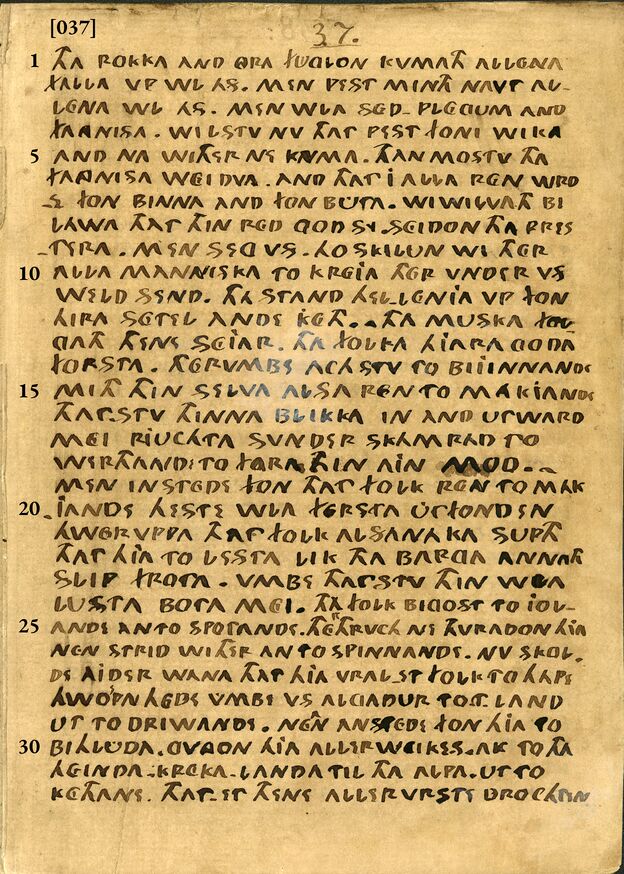 [037]
37.
1 THA ROKKA AND ORA FUGLON KVMATH ALLENA
FALLA VP VVL AS. MEN PEST MINTH NAVT AL-
LENA VVL AS. MEN VVLA SED- PLEGUM AND
FANGNISA. WILSTV NV THAT PEST FONI WIKA
5 AND NA WITHER NE KVMA. THAN MOSTV THA
FANGNISA WEI DVA. AND THAT I ALLA REN WRD-
E FON BINNA AND FON BUTA. WI WILLATH BI
LAWA THAT THIN RED GOD SY. SEIDON THA PRES
TERA. MEN SEG VS. HO SKILUN WI THER
10 ALLA MANNISKA TO KREJA THER VNDER VS
WELD SEND. THA STAND HELLENIA VP FON
HIRA SETEL ANDE KETH. THA MUSKA FOL
GATH THENE SEJAR. THA FOLKA HJARA GODA
FORSTA. THERVMBE ACHSTV TO BIJINNANDE
15 MITH THIN SELVA ALSA REN TO MAKJANDE
THATSTV THINNA BLIKKA IN AND UTWARD
MEI RIUCHTA SUNDER SKAMRAD TO
WERTHANDE TO FARA THIN AIN MOD.
MEN IN STEDE FON THAT FOLK REN TO MAK
20 JANDE HESTE VVLA FERSTA UTFONDEN
HWERVPPA THAT FOLK AL SA NAKA SUPTH
THAT HIA TO LESTA LIK THA BARGA ANNATH
SLIP FROTA. VMBE THATSTV THIN VVLA
LUSTA BOTA MEI. THAT FOLK BIGOST TO JOL-
25 ANDE AND TO SPOTANDE. THERTHRUCH NE THVRADON HIA
NEN STRID WITHER AN TO SPINNANDE. NV SKOL-
DE AJDER WANA THAT HIA VRAL-ET FOLK TO HAPE
HWOPEN HEDE VMBE VS ALGADUR TOT LAND
UT TO DRIWANDE. NEN AN STEDE FON HIA TO
30 BIHLUDA. GVNGON HIA ALLERWEIKES. AK TO THA
HEINDA-KREKA-LANDA TIL THA ALPA. UT TO
KETHANE. THAT-ET THENE ALLERVRSTE DROCHTEN